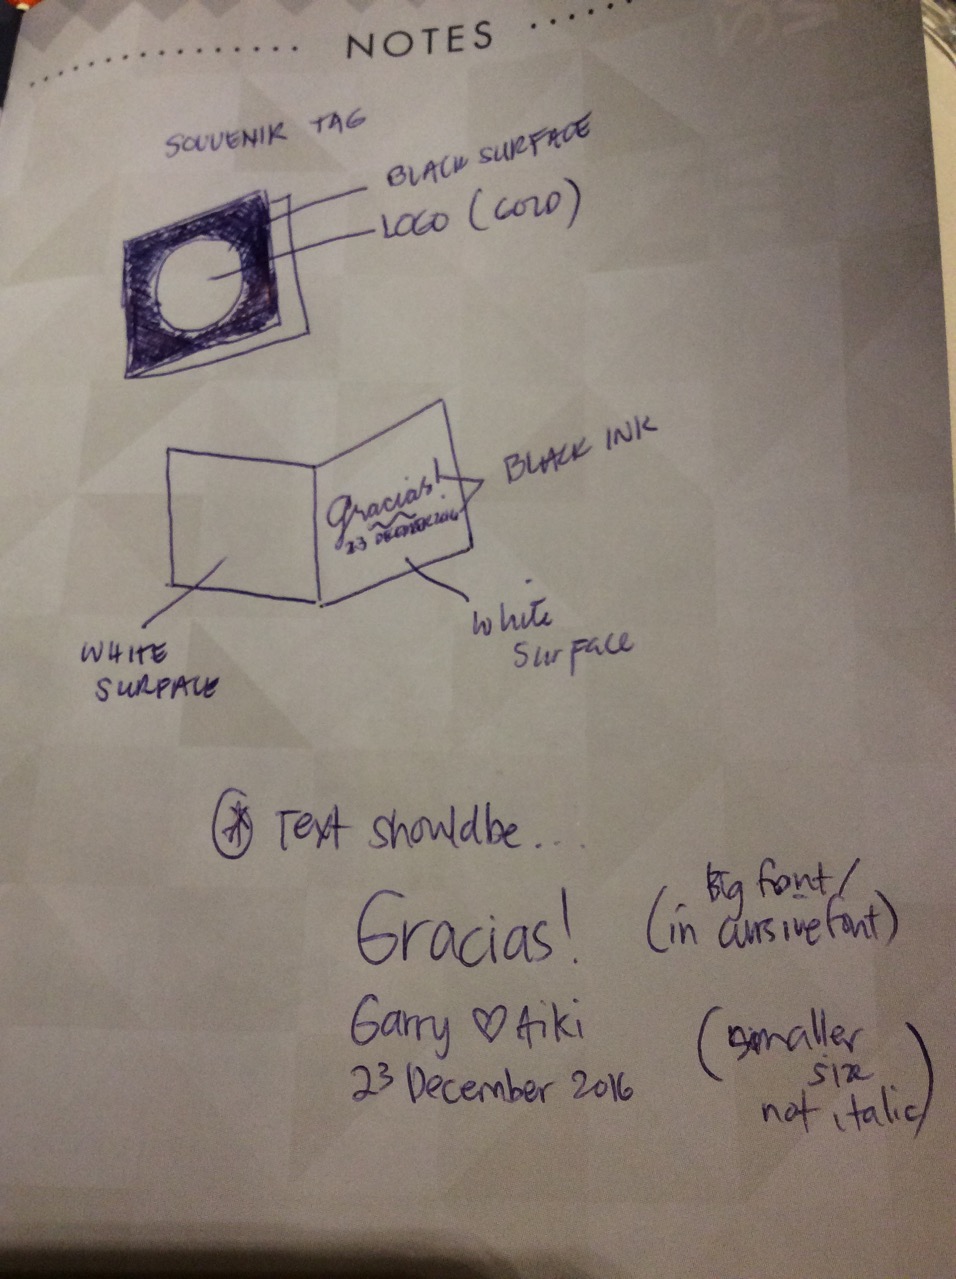 NOTES
SOUVENIR TAG
BLACK SURFACE
LOGO (GOLD)
BLACK INK
Gracias!
23 DECEMBER 2016
WHITE
SURFACE
White
Surface
Text should be...
Gracias!
(Big font/
in cursive font)
Garry ♡ Aiki
23 December 2016
(smaller
size
not italic)